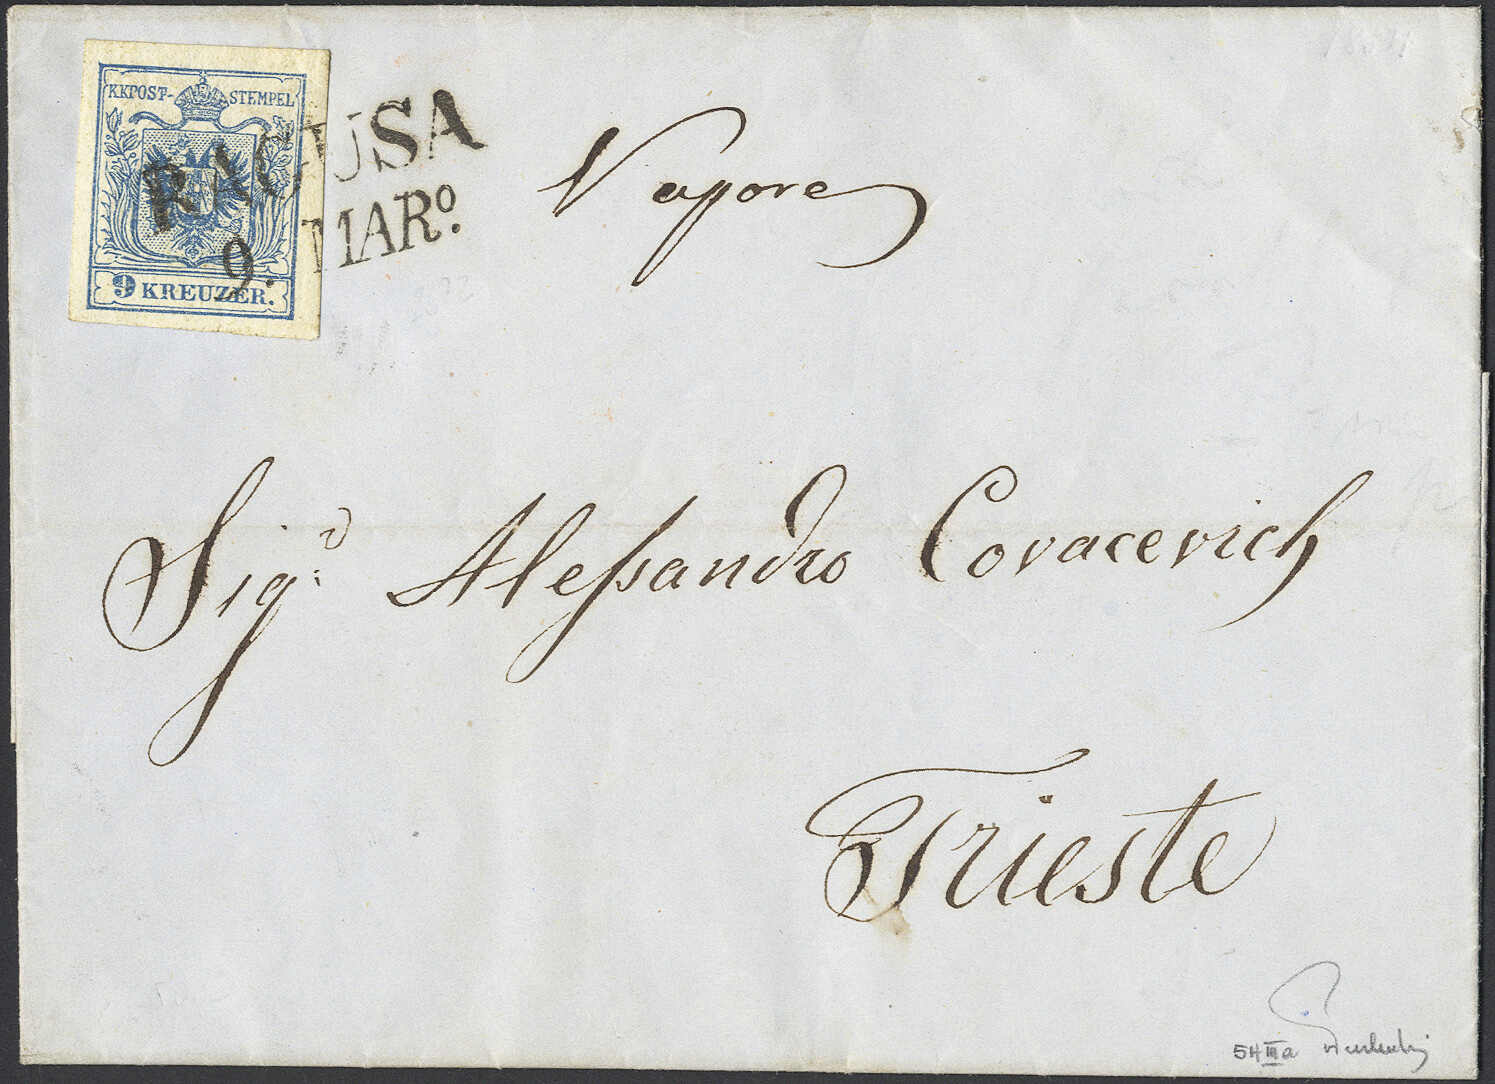 KKPOST-STEMPEL
9 KREUZER.
RAGUSA
9. MARº.
Vapore
Sigr. Alessandro Covacevich
Trieste
5HIIIa